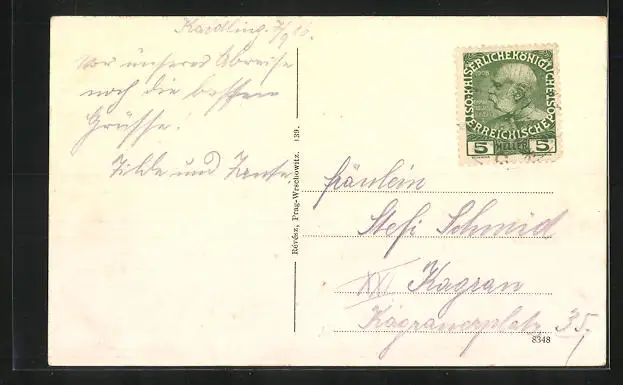 Kardling. 7/9 16.
Vor unserer Abreise
noch die besten
Grüsse!
Tilde und Tante.
Révész, Prag-Wrschowitz. 139.
KAISERLICHE KÖNIGLICHE ÖSTERREICHISCHE POST
5 HELLER 5
Fräulein
Stefi Schmid
XXI Kagran
Kagranerplatz 35.
8348